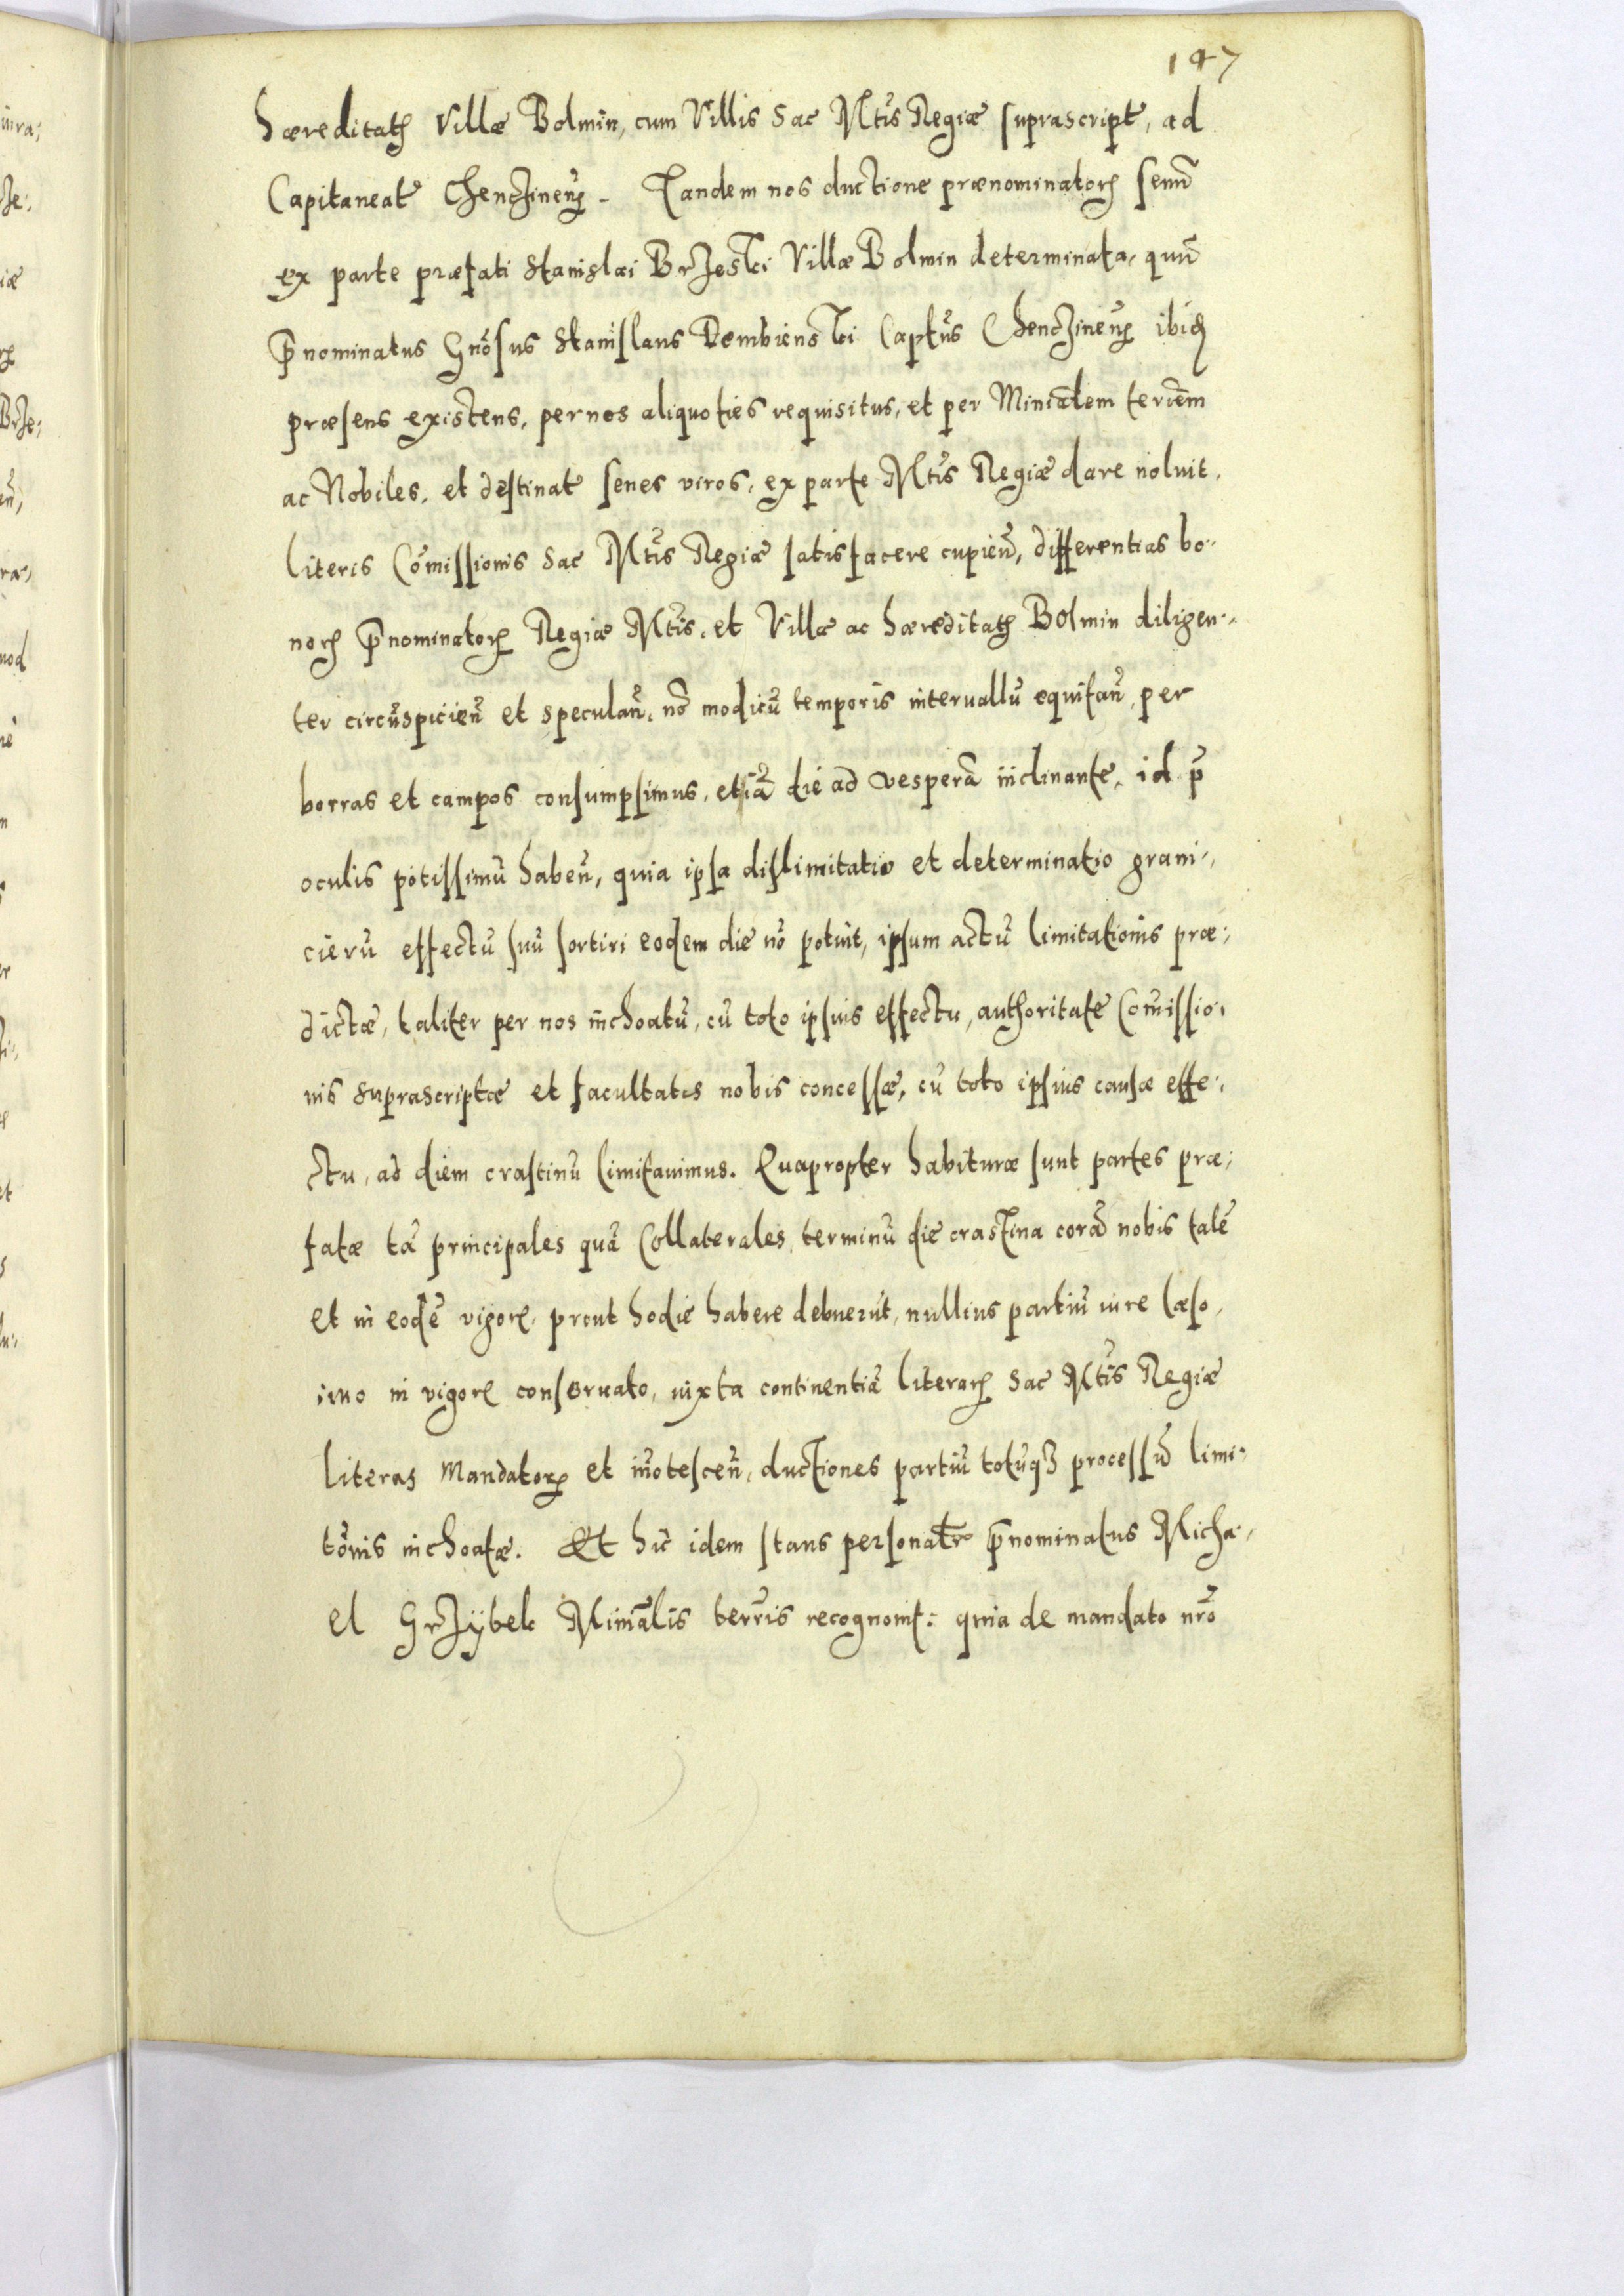 147
Hæreditatȩ Villæ Bolmin, cum Villis Sac Mtis Regiæ suprascript, ad
Capitaneat Chenczineñ. Tandem nos ductione prænominatorȩ senũ
ex parte præfati Stanislai Brzeski Villæ Bolmin determinata, quũ
p̃nominatus Gnõsus Stanislaus Dembienski Captũs Chenczineñ ibid
præsens existens, per nos aliquoties requisitus, et per Miniãlem terrẽm
ac Nobiles, et destinat senes viros, ex parte Mtis Regiæ dare noluit.
literis Cõmissionis Sac Mtis Regiæ satisfacere cupieñ, differentias bo-
norȩ p̃nominatorȩ Regiæ Mtis, et Villæ ac Hæreditatȩ Bolmin diligen-
ter circũspicieñ et speculañ, nõ modicũ temporis interuallũ equitañ, per
borras et campos consumpsimus, etiã die ad vesperã inclinante, id p̃
oculis potissimũ habeñ, quia ipsa dislimitatio et determinatio grani-
cierũ effectũ suũ sortiri eodem die nõ potuit, ipsum actũ limitationis præ-
dictæ, taliter per nos inchoatũ, cũ toto ipsius effectu, authoritate Cõmissio-
nis suprascriptæ et facultatis nobis concessæ, cũ toto ipsius causæ effe-
ctu, ad diem crastinũ limitauimus. Quapropter habituræ sunt partes præ-
fatæ tã principales quã Collaterales, terminũ die crastina corã nobis talẽ
et in eodẽ vigorȩ, prout hodie habere debuerũt, nullius partiũ iure læso,
imo in vigorȩ conseruato, iuxta continentiã literarȩ Sac Mtis Regiæ
literas Mandatorȩ et iñotesceñ, ductiones partiũ totũqȝ processũ limi-
tõnis inchoatæ. Et hic idem stans personatr p̃nominatus Micha-
el Grzÿbek Miniãlis terrris recognouit: quia de mandato nrõ